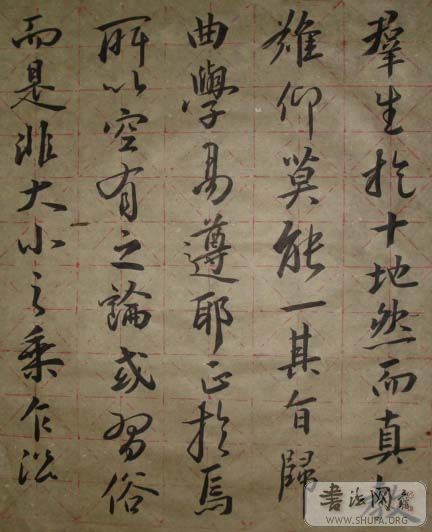 羣生於十地然而真
難仰莫能一其旨歸
曲學易遵耶正於焉
所以空有之論或習俗
而是非大小之乘乍沿
书法网
WWW.SHUFA.ORG